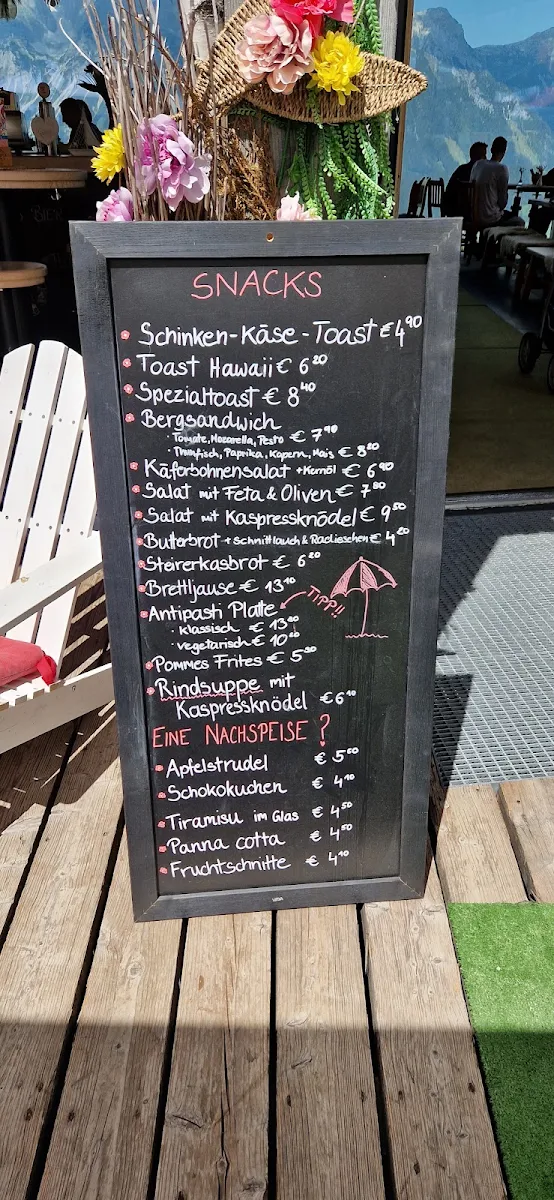 SNACKS
Schinken-Käse-Toast € 4⁹⁰
Toast Hawaii € 6²⁰
Spezialtoast € 8⁴⁰
Bergsandwich
· Tomate, Mozarella, Pesto € 7⁹⁰
· Thunfisch, Paprika, Kapern, Mais € 8²⁰
Käferbohnensalat + Kernöl € 6⁹⁰
Salat mit Feta & Oliven € 7⁸⁰
Salat mit Kaspressknödel € 9⁵⁰
Butterbrot + Schnittlauch & Radieschen € 4²⁰
Steirerkasbrot € 6²⁰
Brettljause € 13¹⁰
Antipasti Platte TIPP!!
· Klassisch € 13
· vegetarisch € 10
Pommes Frites € 5
Rindsuppe mit
Kaspressknödel € 6¹⁰
EINE NACHSPEISE?
Apfelstrudel € 5⁶⁰
Schokokuchen € 4¹⁰
Tiramisu im Glas € 4⁵⁰
Panna cotta € 4⁵⁰
Fruchtschnitte € 4¹⁰